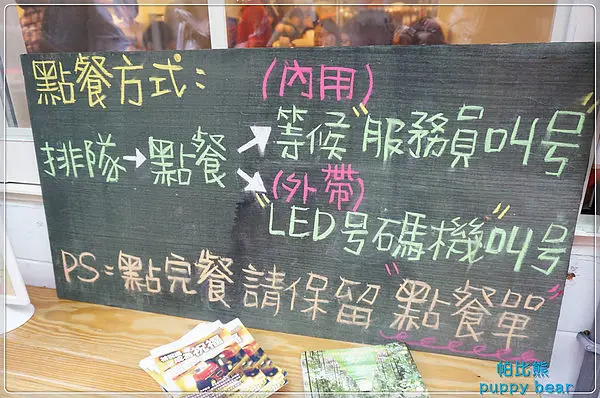 點餐方式：
(內用)
排隊→點餐
等候"服務員叫号"
(外帶)
"LED号碼機"叫号
PS：點完餐請保留"點餐單"
帕比熊
puppy bear